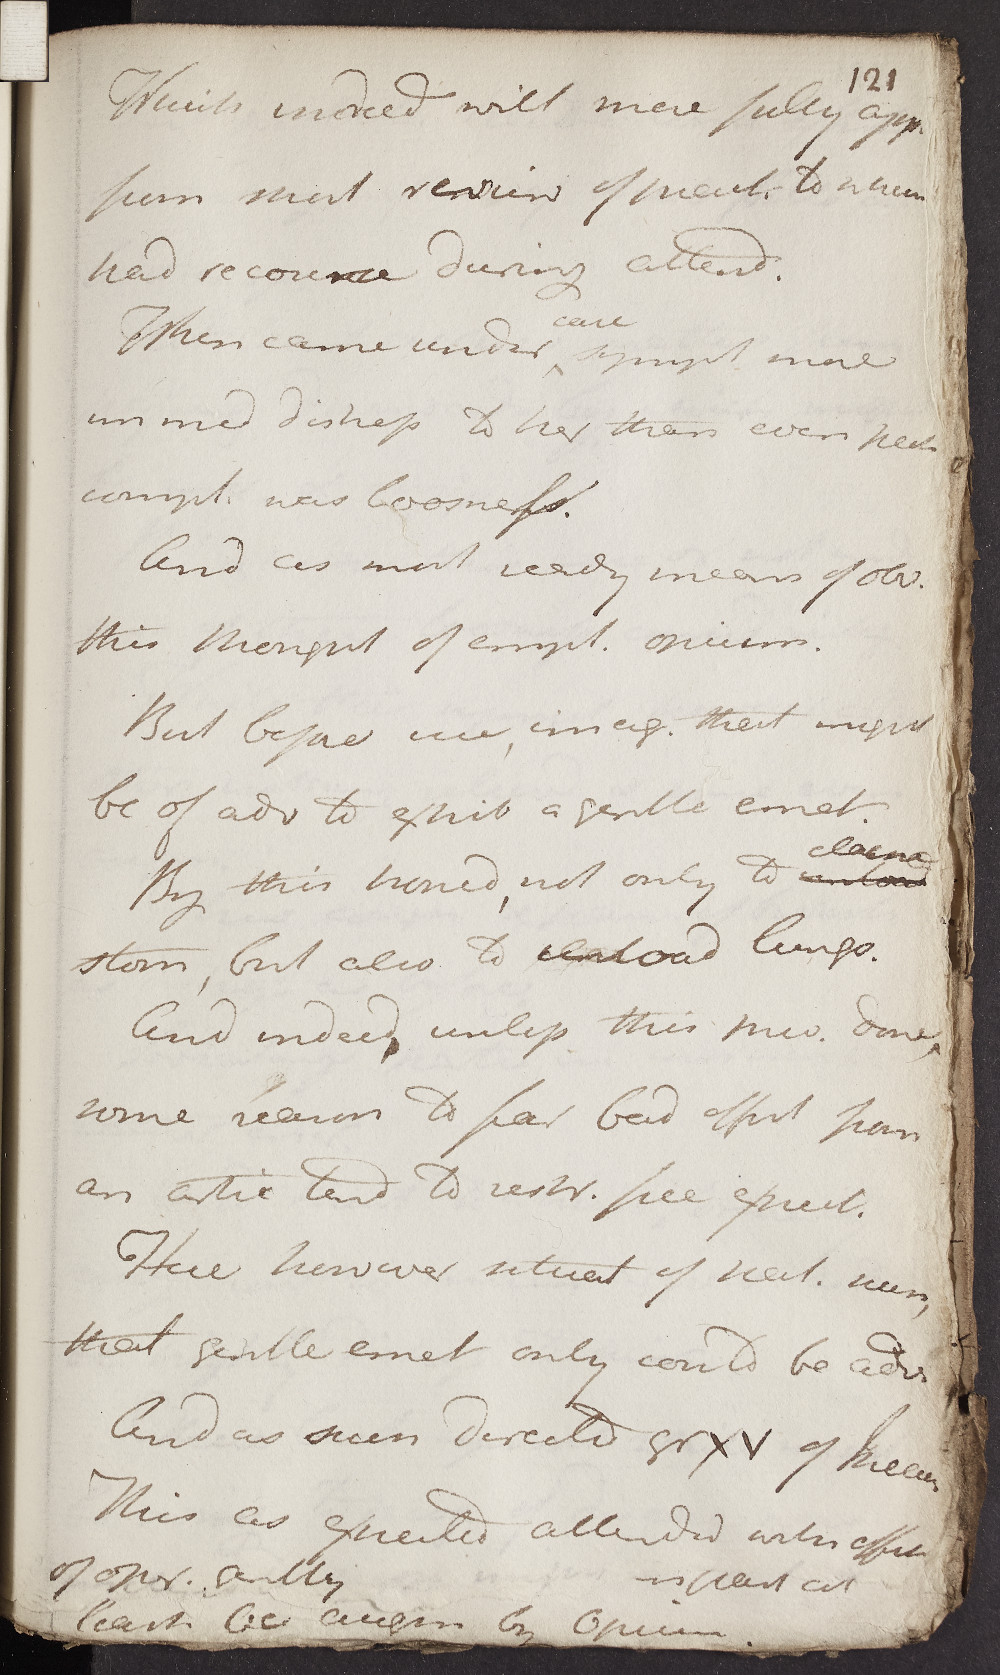 121
Which indeed will more fully app.
from short review of pract. to whch
had recourse during attend.
When came under care sympt. more
immed distress to her than even pect.
compt. was loosness.
And as most ready means of obv.
this thought of empl. opium.
But before use, imag. that might
be of adv to exhib a gentle emet.
By this hoped, not only to unload cleanse
stom, but also to unload lungs.
And indeed, unless this prev. done,
some reason to fear bad effect from
an artic tend to restr. free expect.
Here however situat of pect. such,
that gentle emet only could be adv.
And as such directed gr XV of Ipecac
This as expected attended with effect
of oper. gently
in part at
least be augm by Opium.